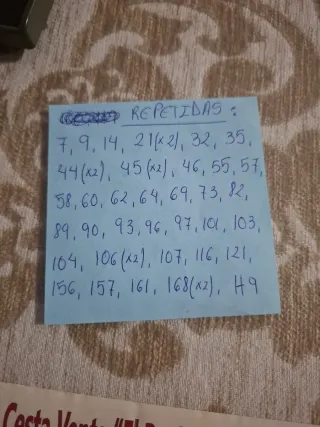 REPETIDAS:
7, 9, 14, 21(x2), 32, 35,
44(x2), 45(x2), 46, 55, 57,
58, 60, 62, 64, 69, 73, 82,
89, 90, 93, 96, 97, 101, 103,
104, 106(x2), 107, 116, 121,
156, 157, 161, 168(x2), H9
Cesta Venta "El